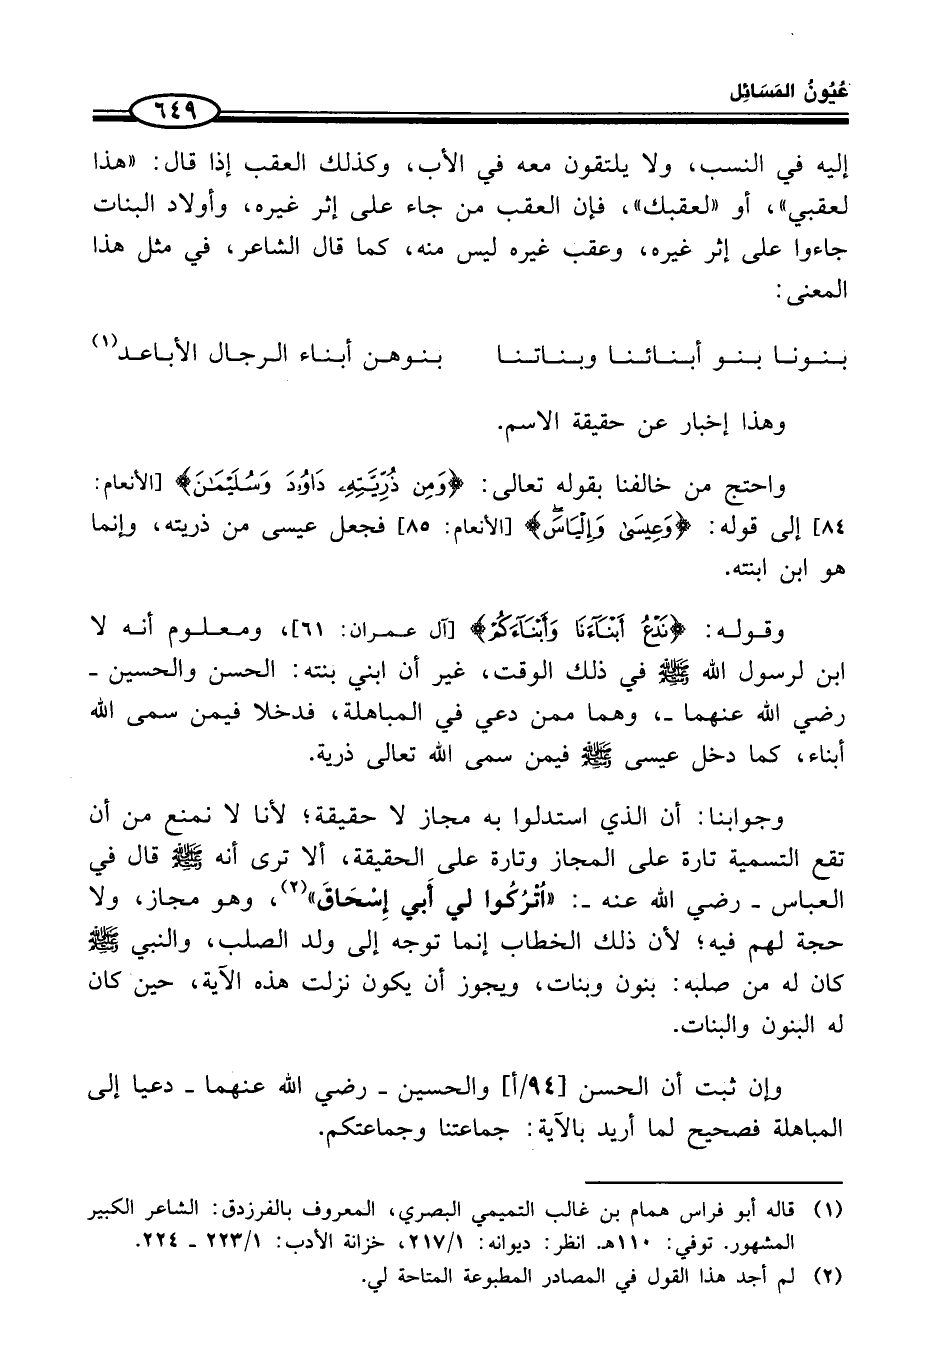 عُيُونُ المَسَائِل
٦٤٩
إليه في النسب، ولا يلتقون معه في الأب، وكذلك العقب إذا قال: «هذا
لعقبي»، أو «لعقبك»، فإن العقب من جاء على إثر غيره، وأولاد البنات
جاءوا على إثر غيره، وعقب غيره ليس منه، كما قال الشاعر، في مثل هذا
المعنى:
بنونا بنو أبنائنا وبناتنا بنوهن أبناء الرجال الأباعد(١)
وهذا إخبار عن حقيقة الاسم.
واحتج من خالفنا بقوله تعالى: ﴿وَمِن ذُرِّيَّتِهِۦ دَاوُۥدَ وَسُلَيْمَٰنَ﴾ [الأنعام:
٨٤] إلى قوله: ﴿وَعِيسَىٰ وَإِلْيَاسَۖ﴾ [الأنعام: ٨٥] فجعل عيسى من ذريته، وإنما
هو ابن ابنته.
وقوله: ﴿نَدْعُ أَبْنَآءَنَا وَأَبْنَآءَكُمْ﴾ [آل عمران: ٦١]، ومعلوم أنه لا
ابن لرسول الله ﷺ في ذلك الوقت، غير أن ابني بنته: الحسن والحسين -
رضي الله عنهما -، وهما ممن دعي في المباهلة، فدخلا فيمن سمى الله
أبناء، كما دخل عيسى ﷺ فيمن سمى الله تعالى ذرية.
وجوابنا: أن الذي استدلوا به مجاز لا حقيقة؛ لأنا لا نمنع من أن
تقع التسمية تارة على المجاز وتارة على الحقيقة، ألا ترى أنه ﷺ قال في
العباس - رضي الله عنه -: «اُتْرُكُوا لي أَبي إِسْحَاقَ»(٢)، وهو مجاز، ولا
حجة لهم فيه؛ لأن ذلك الخطاب إنما توجه إلى ولد الصلب، والنبي ﷺ
كان له من صلبه: بنون وبنات، ويجوز أن يكون نزلت هذه الآية، حين كان
له البنون والبنات.
وإن ثبت أن الحسن [٩٤/أ] والحسين - رضي الله عنهما - دعيا إلى
المباهلة فصحيح لما أريد بالآية: جماعتنا وجماعتكم.
(١) قاله أبو فراس همام بن غالب التميمي البصري، المعروف بالفرزدق: الشاعر الكبير
المشهور. توفي: ١١٠هـ. انظر: ديوانه: ٢١٧/١، خزانة الأدب: ٢٢٣/١ - ٢٢٤.
(٢) لم أجد هذا القول في المصادر المطبوعة المتاحة لي.